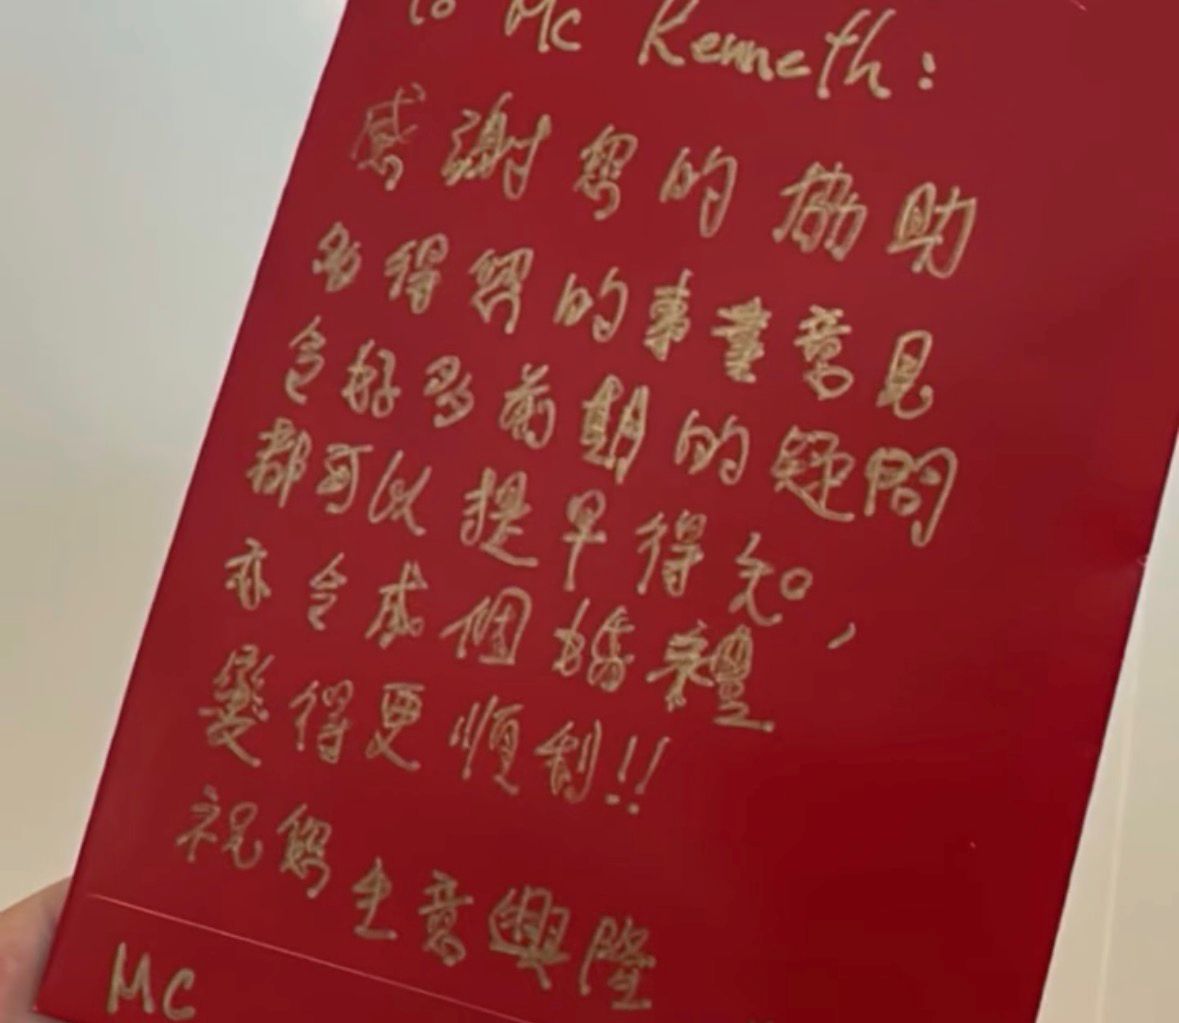 to Mc Kenneth:
感謝您的協助
多得您的專業意見
令好多前期的疑問
都可以提早得知,
亦令成個婚禮
變得更順利!!
祝您生意興隆
MC